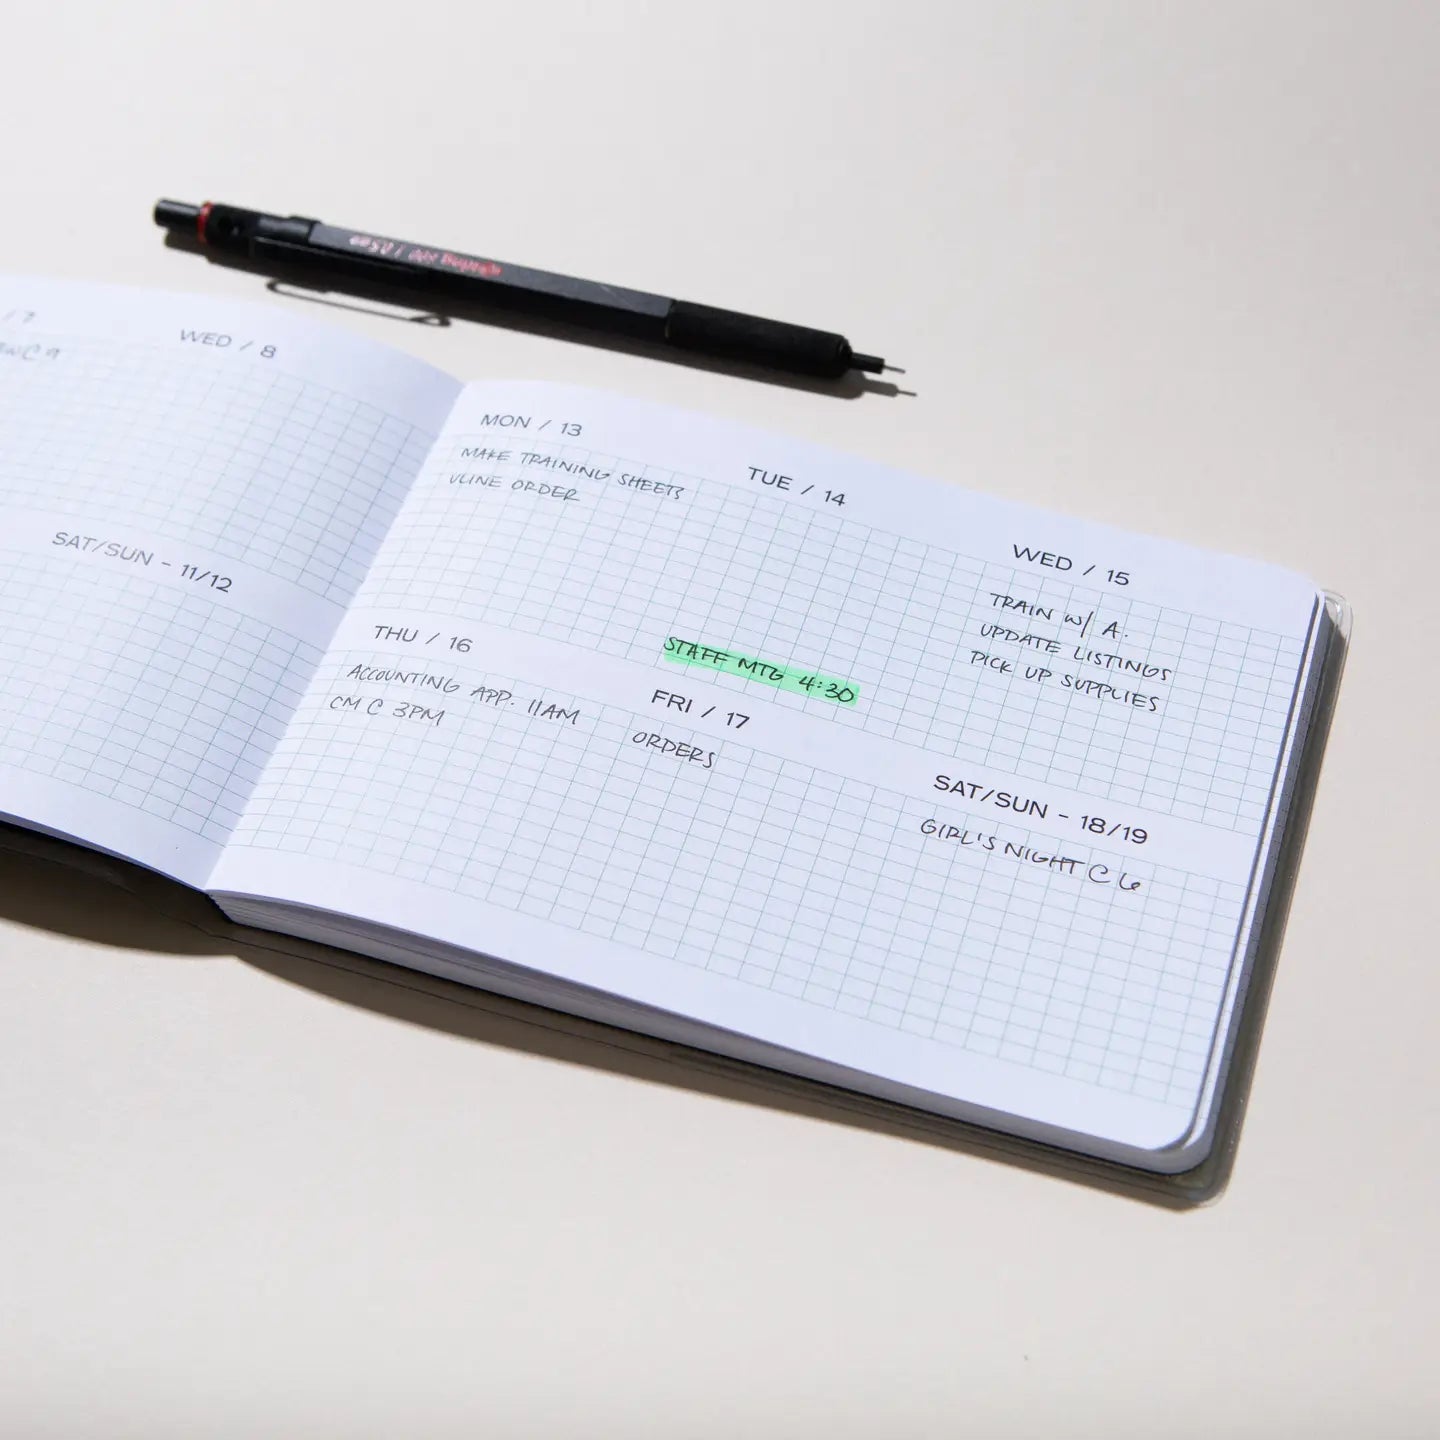 / 7
WED / 8
SAT/SUN - 11/12
MON / 13
MAKE TRAINING SHEETS
VLINE ORDER
TUE / 14
STAFF MTG 4:30
WED / 15
TRAIN W/ A.
UPDATE LISTINGS
PICK UP SUPPLIES
THU / 16
ACCOUNTING APP. 11AM
CM C 3PM
FRI / 17
ORDERS
SAT/SUN - 18/19
GIRL'S NIGHT C 6